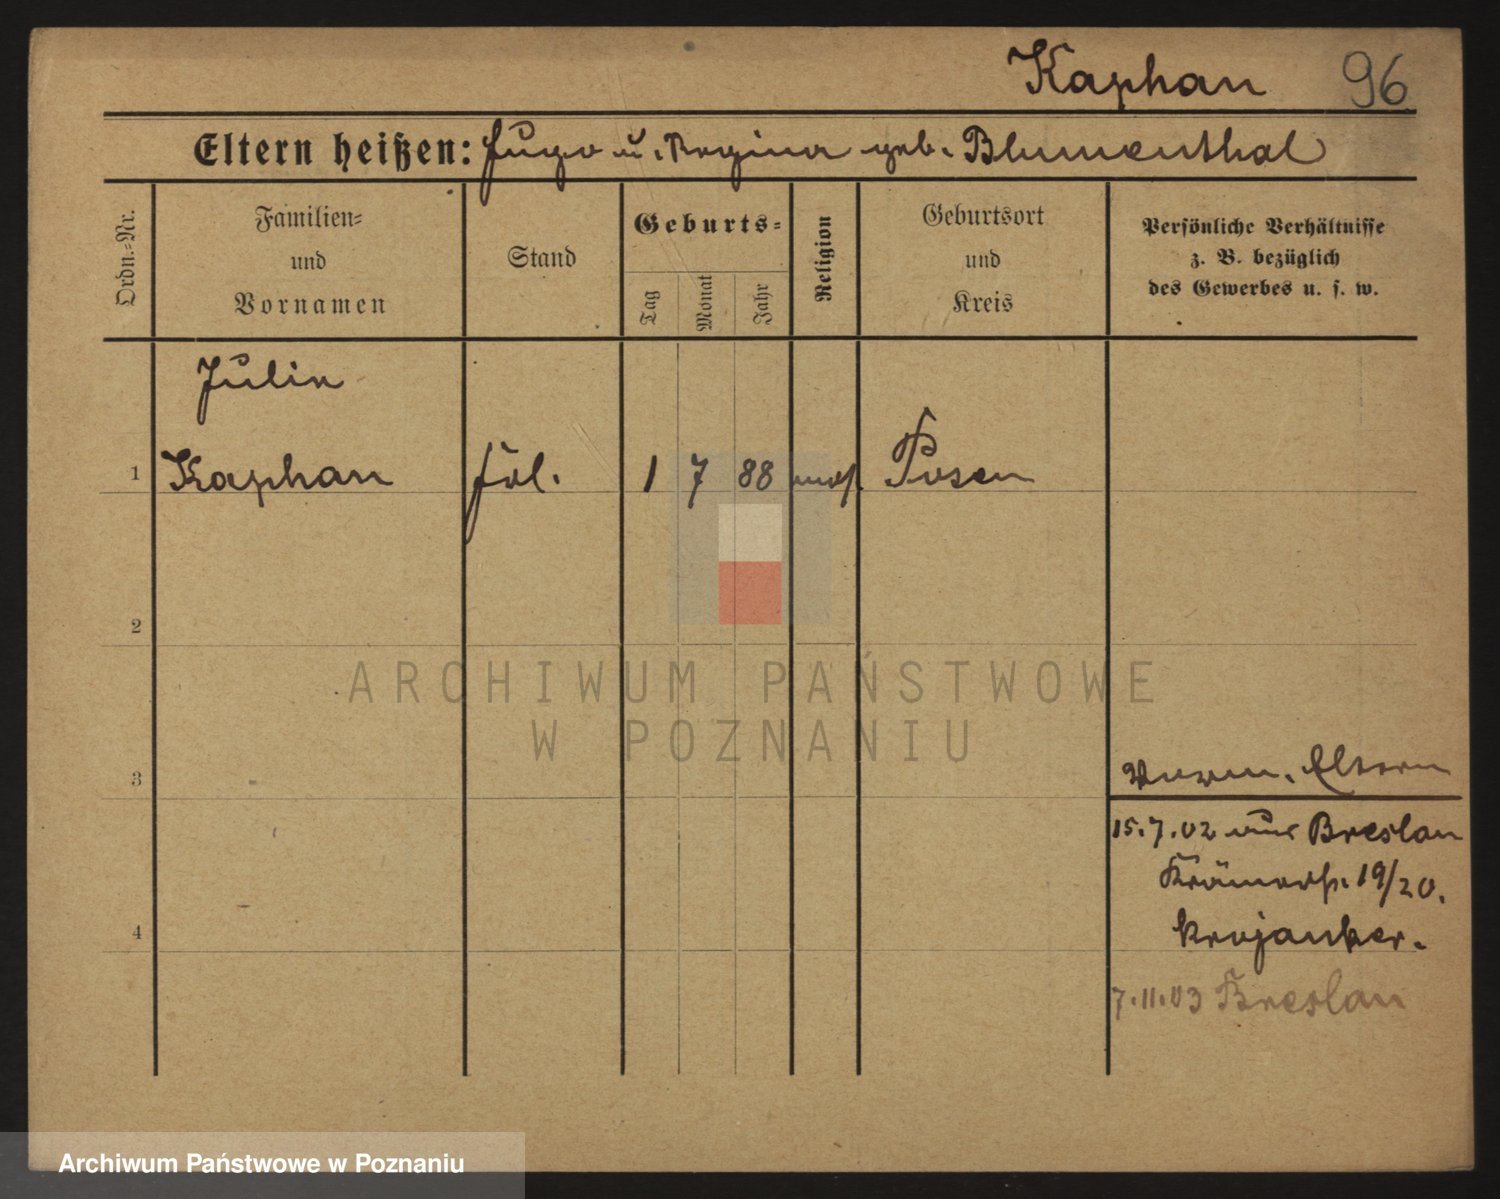 Kaphan 96
Eltern heißen: Hugo u. Regina geb. Blumenthal
Ordn.=Nr.
Familien=
und
Vornamen
Stand
Geburts=
Tag
Monat
Jahr
Religion
Geburtsort
und
Kreis
Persönliche Verhältnisse
z. B. bezüglich
des Gewerbes u. s. w.
Julia
1 Kaphan Frl. 1 7 88 mos. Posen
2
3
Eltern
15.7.02 aus Breslau
19/20.
4 Krojanker.
7.11.03 Breslau
ARCHIWUM PAŃSTWOWE
W POZNANIU
Archiwum Państwowe w Poznaniu